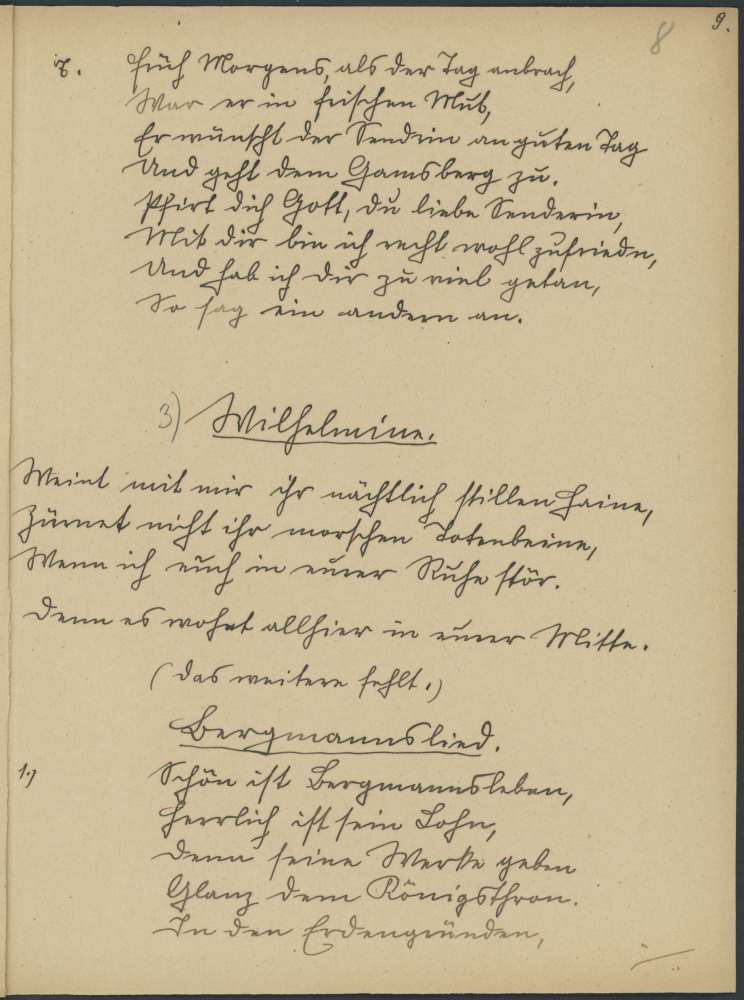 9.
8
8. Früh Morgens, als der Tag anbrach,
War er in frischen Mut,
Er wünscht der Sendrin an guten Tag
Und geht dem Gamsberg zu.
Pfirt dich Gott, du liebe Senderin,
Mit dir bin ich recht wohl zufriedn,
Und hab ich dir zu viel getan,
So sag ein andern an.
3) Wilhelmine.
Weint mit mir ihr nächtlich stillen Haine,
Zürnet nicht ihr morschen Totenbeine,
Wenn ich euch in eurer Ruhe stör.
Denn es wohnt allhier in eurer Mitte.
(Das weitere fehlt.)
Bergmannslied.
1.) Schön ist Bergmannsleben,
Herrlich ist sein Lohn,
Denn seine Werke geben
Glanz dem Königsthron.
In den Erdengründen,